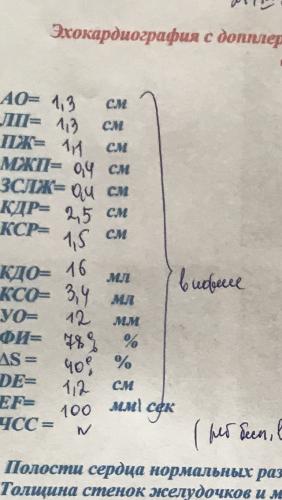 Эхокардиография с допплер
АО= 1,3 см
ЛП= 1,3 см
ПЖ= 1,1 см
МЖП= 0,4 см
ЗСЛЖ= 0,4 см
КДР= 2,5 см
КСР= 1,5 см
КДО= 16 мл
КСО= 3,4 мл
УО= 12 мм
ФИ= 78% %
ΔS = 40% %
DE= 1,2 см
EF= 100 мм\ сек
ЧСС = N
в норме
Полости сердца нормальных раз
Толщина стенок желудочков и м